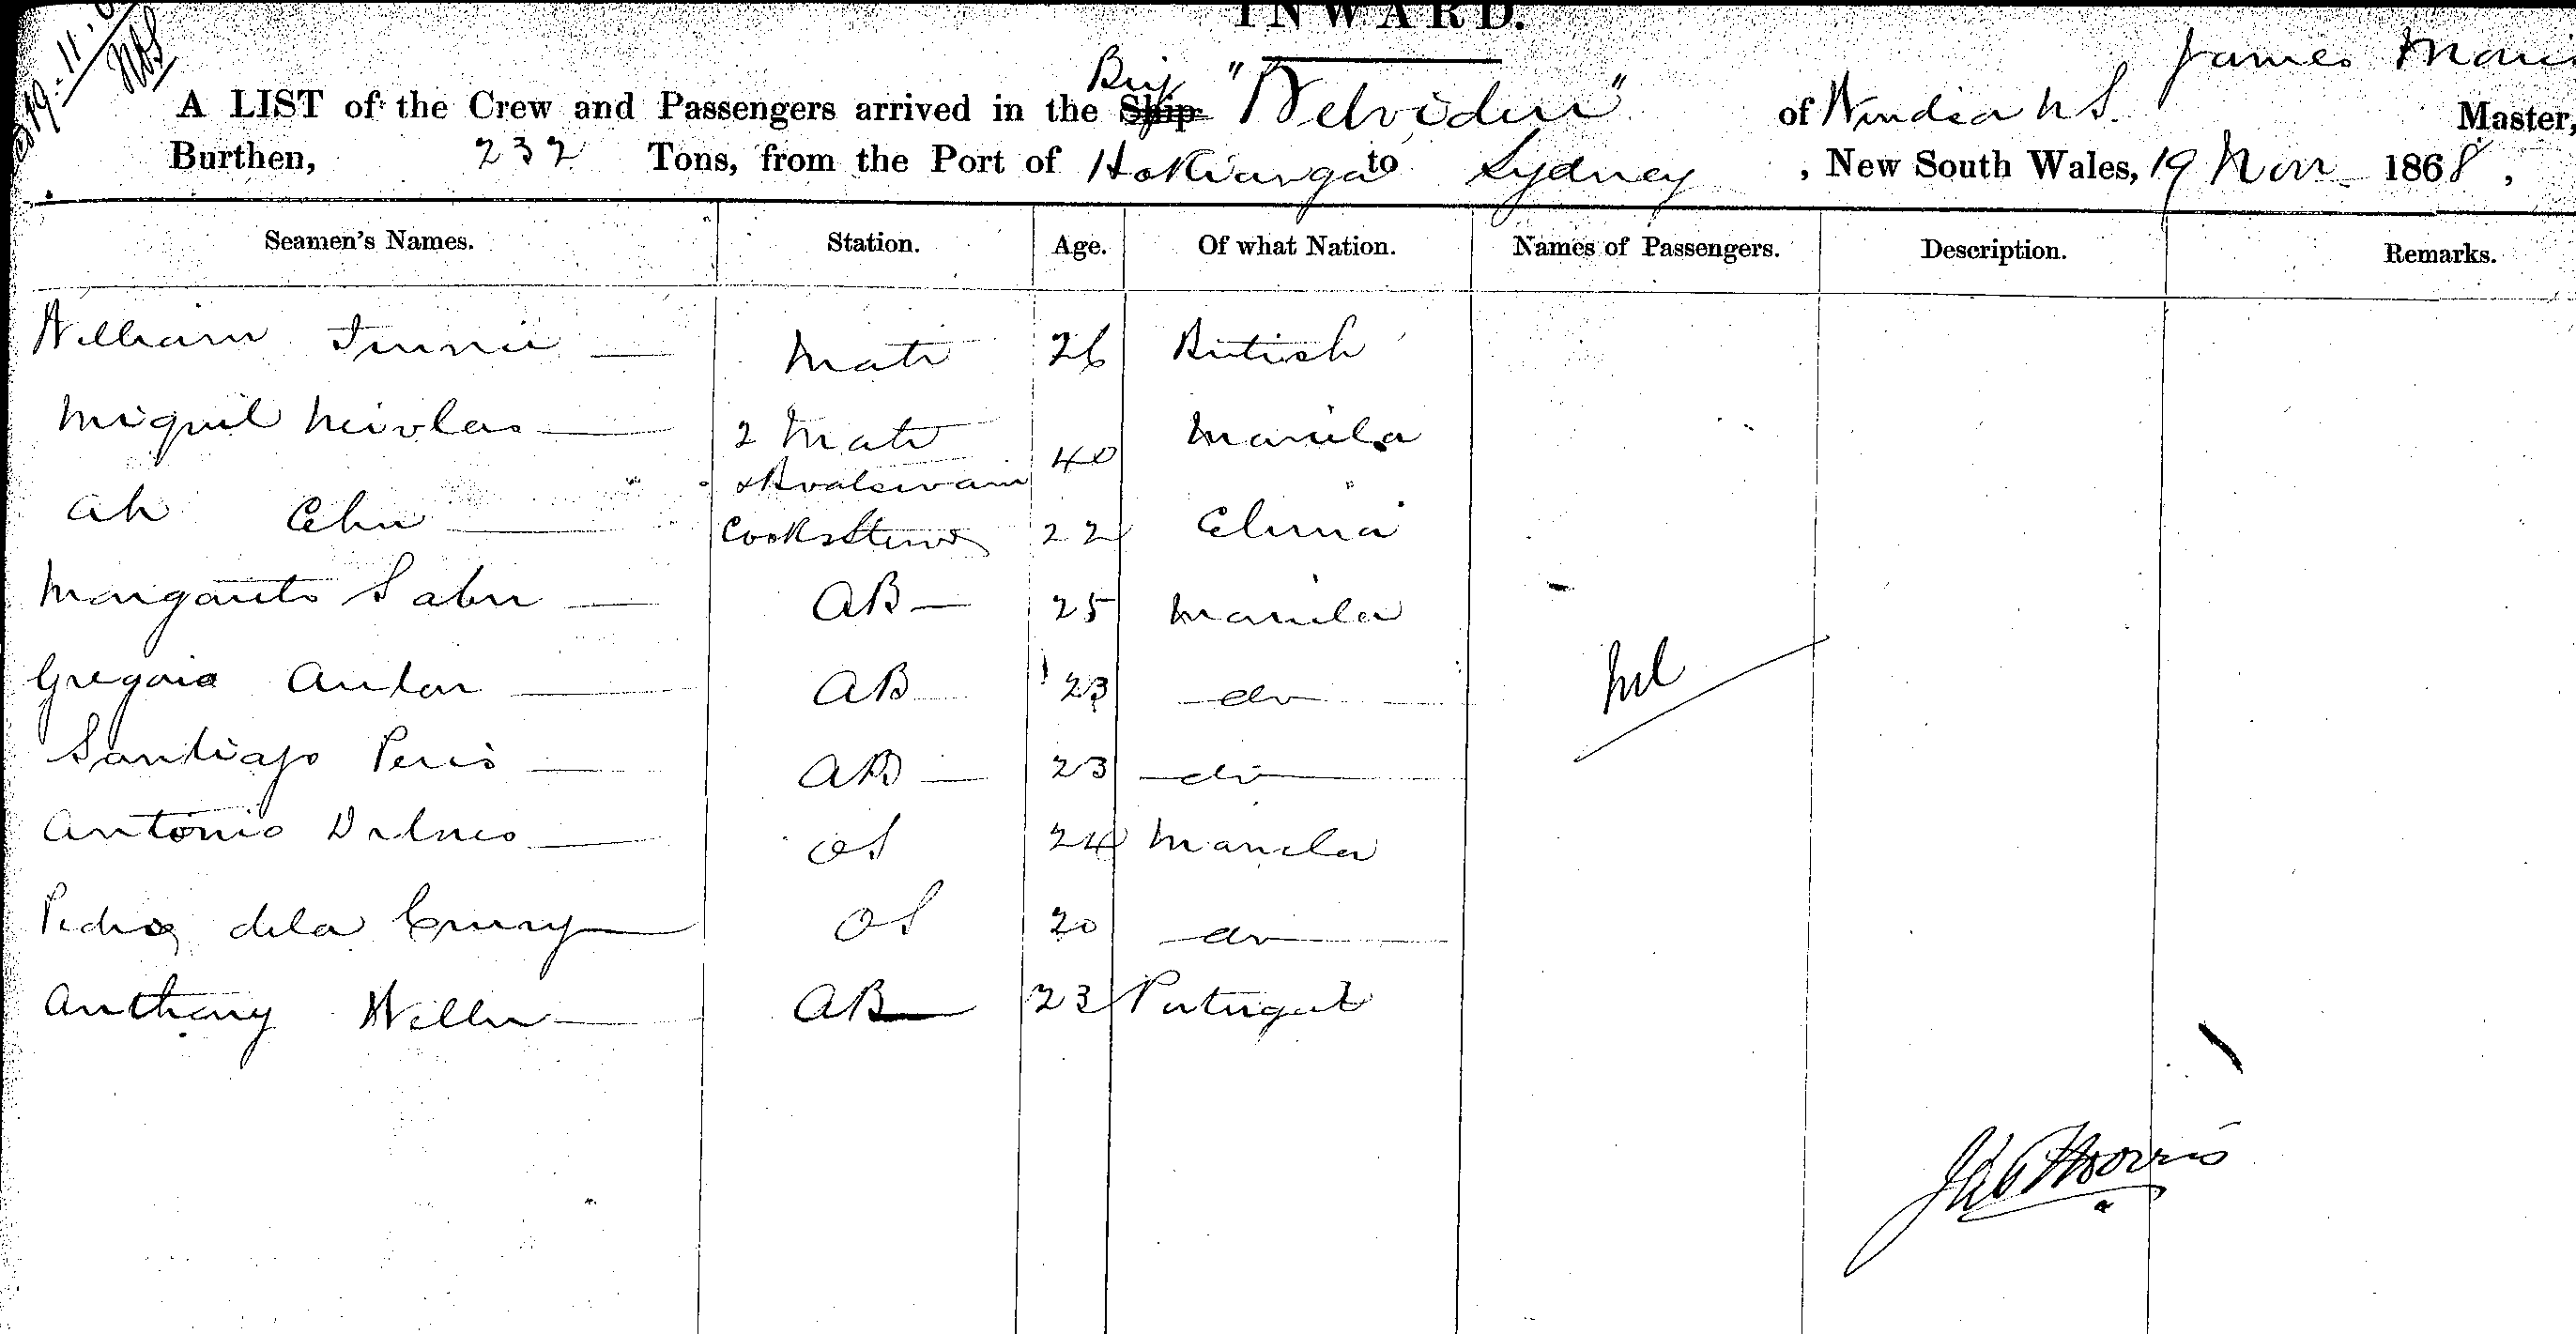 INWARD.
James
A LIST of the Crew and Passengers arrived in the Ship Brig "Belvidere" of Windsor N S. Master,
Burthen, 232 Tons, from the Port of Hokianga to Sydney , New South Wales, 19 Nov 1868 ,
Seamen's Names. Station. Age. Of what Nation. Names of Passengers. Description. Remarks.
William Mate 26 British
Miguel Nicolas 2 Mate 40 Manila
& Boatswain
Ah Chu Cook & Steward 22 China
Margarito AB 25 Manila
Gregorio AB 23 do Nil
Santiago AB 23 do
Antonio OS 24 Manila
Pedro dela Cruz OS 20 do
Anthony AB 23 Portugal
Jas Morris